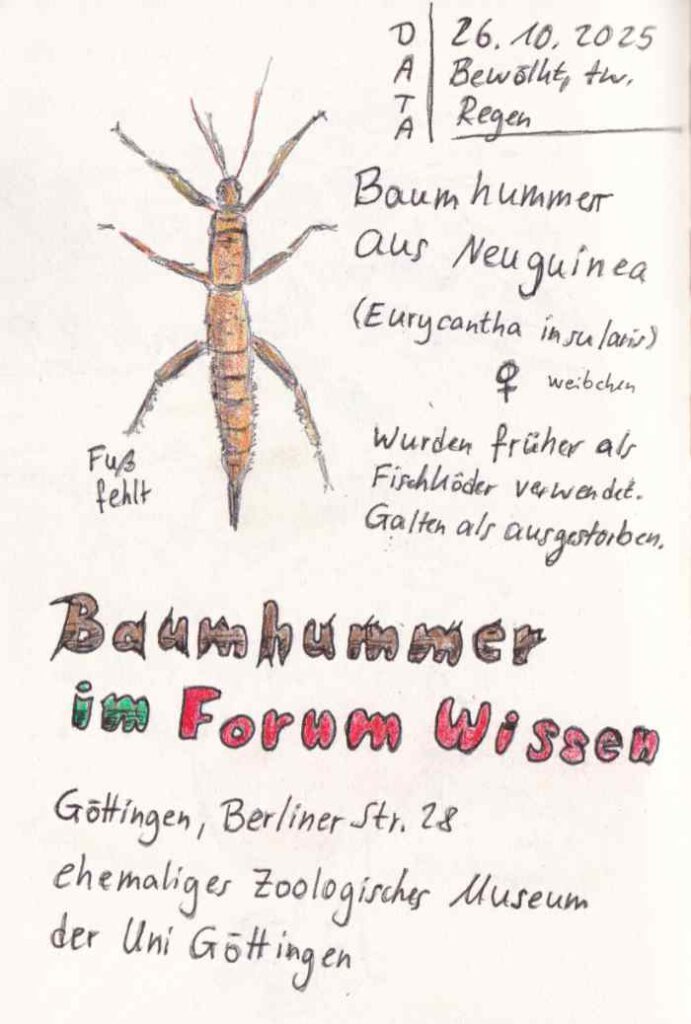 DATA
26.10.2025
Bewölkt, tw.
Regen
Baumhummer
aus Neuguinea
(Eurycantha insularis)
♀ weibchen
Wurden früher als
Fischköder verwendet.
Galten als ausgestorben.
Fuß
fehlt
Baumhummer
im Forum Wissen
Göttingen, Berliner Str. 28
ehemaliges Zoologisches Museum
der Uni Göttingen